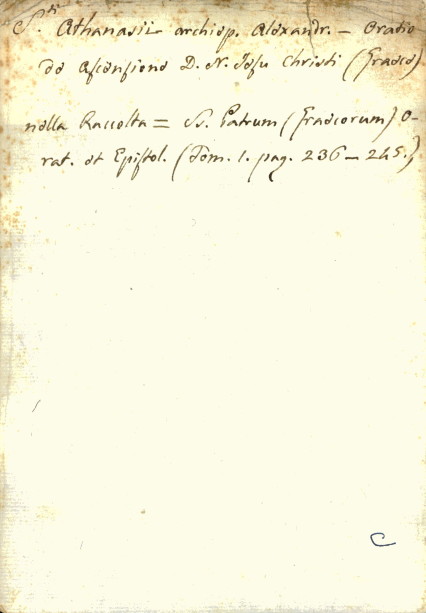 S.ti Athanasii archiep. Alexandr. – Oratio
de Ascensione D. N. Jesu Christi (Graece)
nella Raccolta = SS. Patrum (Graecorum) O-
rat. et Epistol. (Tom. 1. pag. 236 – 245.)
C